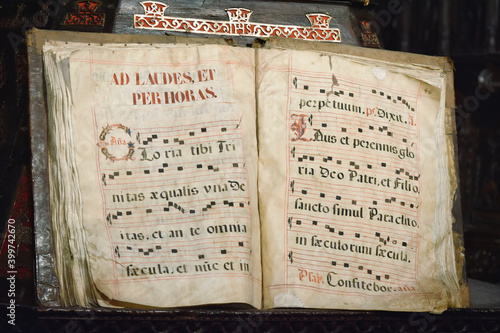 IHS
AD LAUDES, ET
PER HORAS.
Aña
Loria tibi Tri
nitas æqualis vna De
itas, et an te omnia
sæcula, et nūc et in
perpetuum. ps. Dixit. A.
Laus et perennis glo
ria Deo Patri, et Filio,
sancto simul Paraclito,
in sæculorum sæcula.
Psal. Confitebor. aña
© Adobe Stock | #399742670